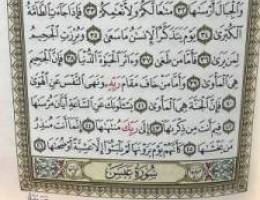 وَٱلْجِبَالَ أَرْسَىٰهَا ٣٢ مَتَٰعًا لَّكُمْ وَلِأَنْعَٰمِكُمْ ٣٣ فَإِذَا جَآءَتِ ٱلطَّآمَّةُ
ٱلْكُبْرَىٰ ٣٤ يَوْمَ يَتَذَكَّرُ ٱلْإِنسَٰنُ مَا سَعَىٰ ٣٥ وَبُرِّزَتِ ٱلْجَحِيمُ
لِمَن يَرَىٰ ٣٦ فَأَمَّا مَن طَغَىٰ ٣٧ وَءَاثَرَ ٱلْحَيَوٰةَ ٱلدُّنْيَا ٣٨ فَإِنَّ ٱلْجَحِيمَ
هِىَ ٱلْمَأْوَىٰ ٣٩ وَأَمَّا مَنْ خَافَ مَقَامَ رَبِّهِۦ وَنَهَى ٱلنَّفْسَ عَنِ ٱلْهَوَىٰ
٤٠ فَإِنَّ ٱلْجَنَّةَ هِىَ ٱلْمَأْوَىٰ ٤١ يَسْـَٔلُونَكَ عَنِ ٱلسَّاعَةِ أَيَّانَ مُرْسَىٰهَا
٤٢ فِيمَ أَنتَ مِن ذِكْرَىٰهَآ ٤٣ إِلَىٰ رَبِّكَ مُنتَهَىٰهَآ ٤٤ إِنَّمَآ أَنتَ مُنذِرُ
مَن يَخْشَىٰهَا ٤٥ كَأَنَّهُمْ يَوْمَ يَرَوْنَهَا لَمْ يَلْبَثُوٓا۟ إِلَّا عَشِيَّةً أَوْ ضُحَىٰهَا ٤٦
سُورَةُ عَبَسَ